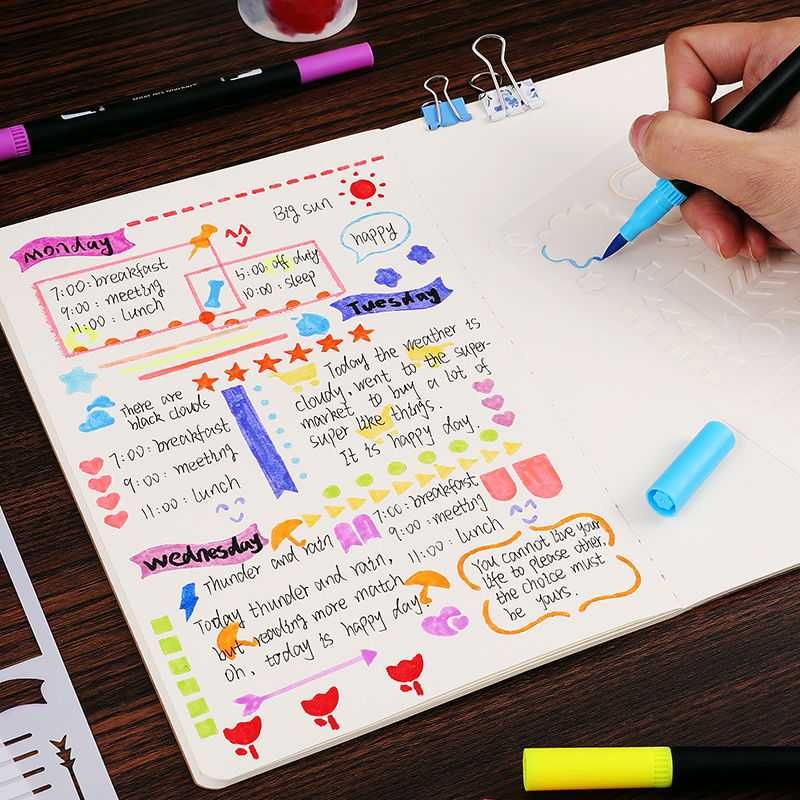 Big sun
monday
happy
7:00: breakfast
9:00: meeting
11:00: Lunch
5:00: off duty
10:00: sleep
Tuesday
There are
black clouds
7:00: breakfast
9:00: meeting
11:00: Lunch
Today the weather is
cloudy, went to the super-
market to buy a lot of
super like things.
It is happy day.
Wednesday
Thunder and rain
7:00: breakfast
9:00: meeting
11:00: Lunch
Today thunder and rain,
but reading more match
oh, today is happy day.
You cannot live your
life to please other.
the choice must
be yours.